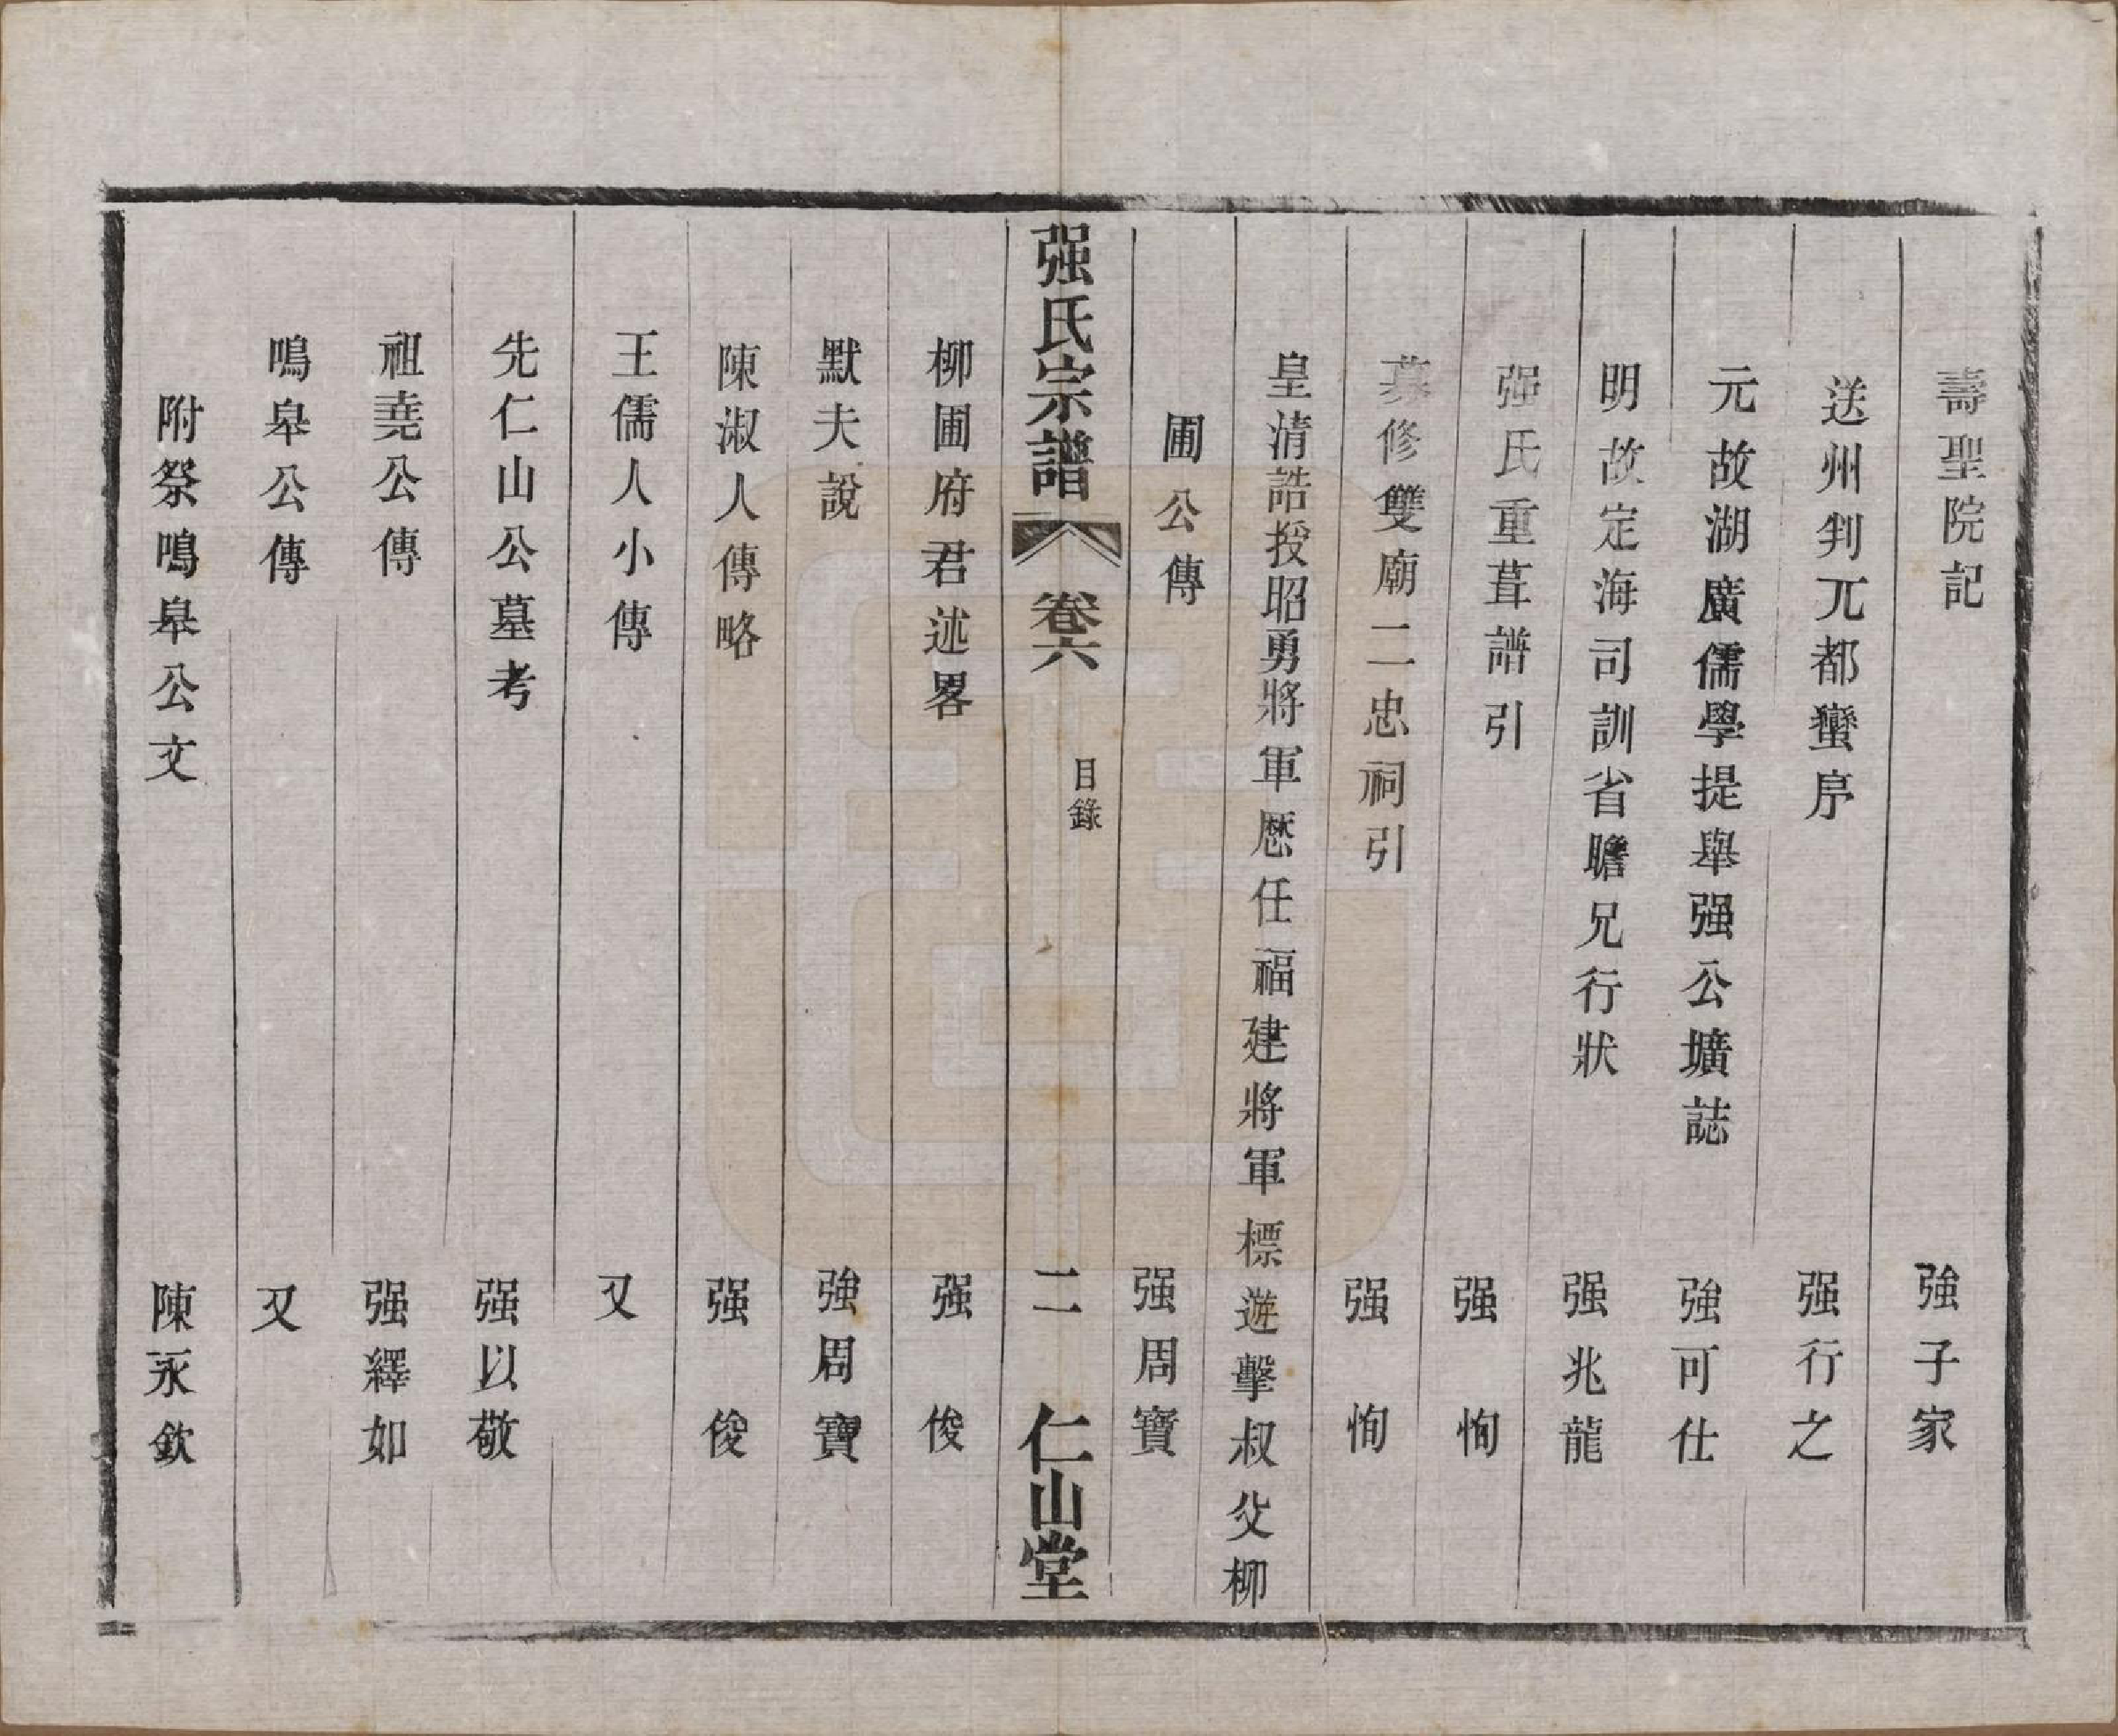 壽聖院記　強子家
送州判兀都蠻序　强行之
元故湖廣儒學提舉强公壙誌　強可仕
明故定海司訓省瞻兄行狀　强兆龍
强氏重葺譜引　强恂
募修雙廟二忠祠引　强恂
皇清誥授昭勇將軍歷任福建將軍標遊擊叔父柳
圃公傳　强周寶
强氏宗譜　卷六　目錄　二　仁山堂
柳圃府君述畧　强俊
默夫說　強周寶
陳淑人傳略　强俊
王儒人小傳　又
先仁山公墓考　强以敬
祖堯公傳　强繹如
鳴皋公傳　又
附祭鳴皋公文　陳永欽